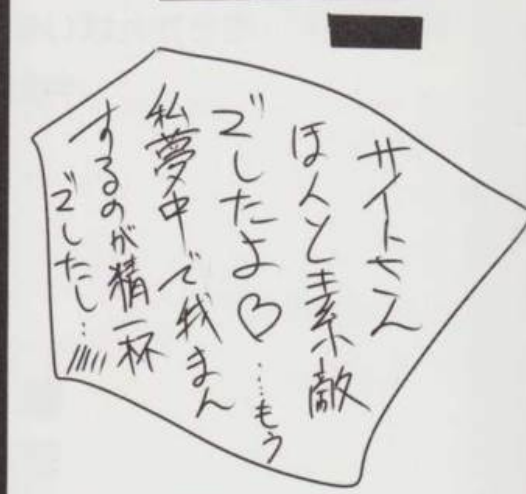 サイトさん
ほんと素敵
でしたよ♡……もう
私夢中で我まん
するのが精一杯
でしたし…